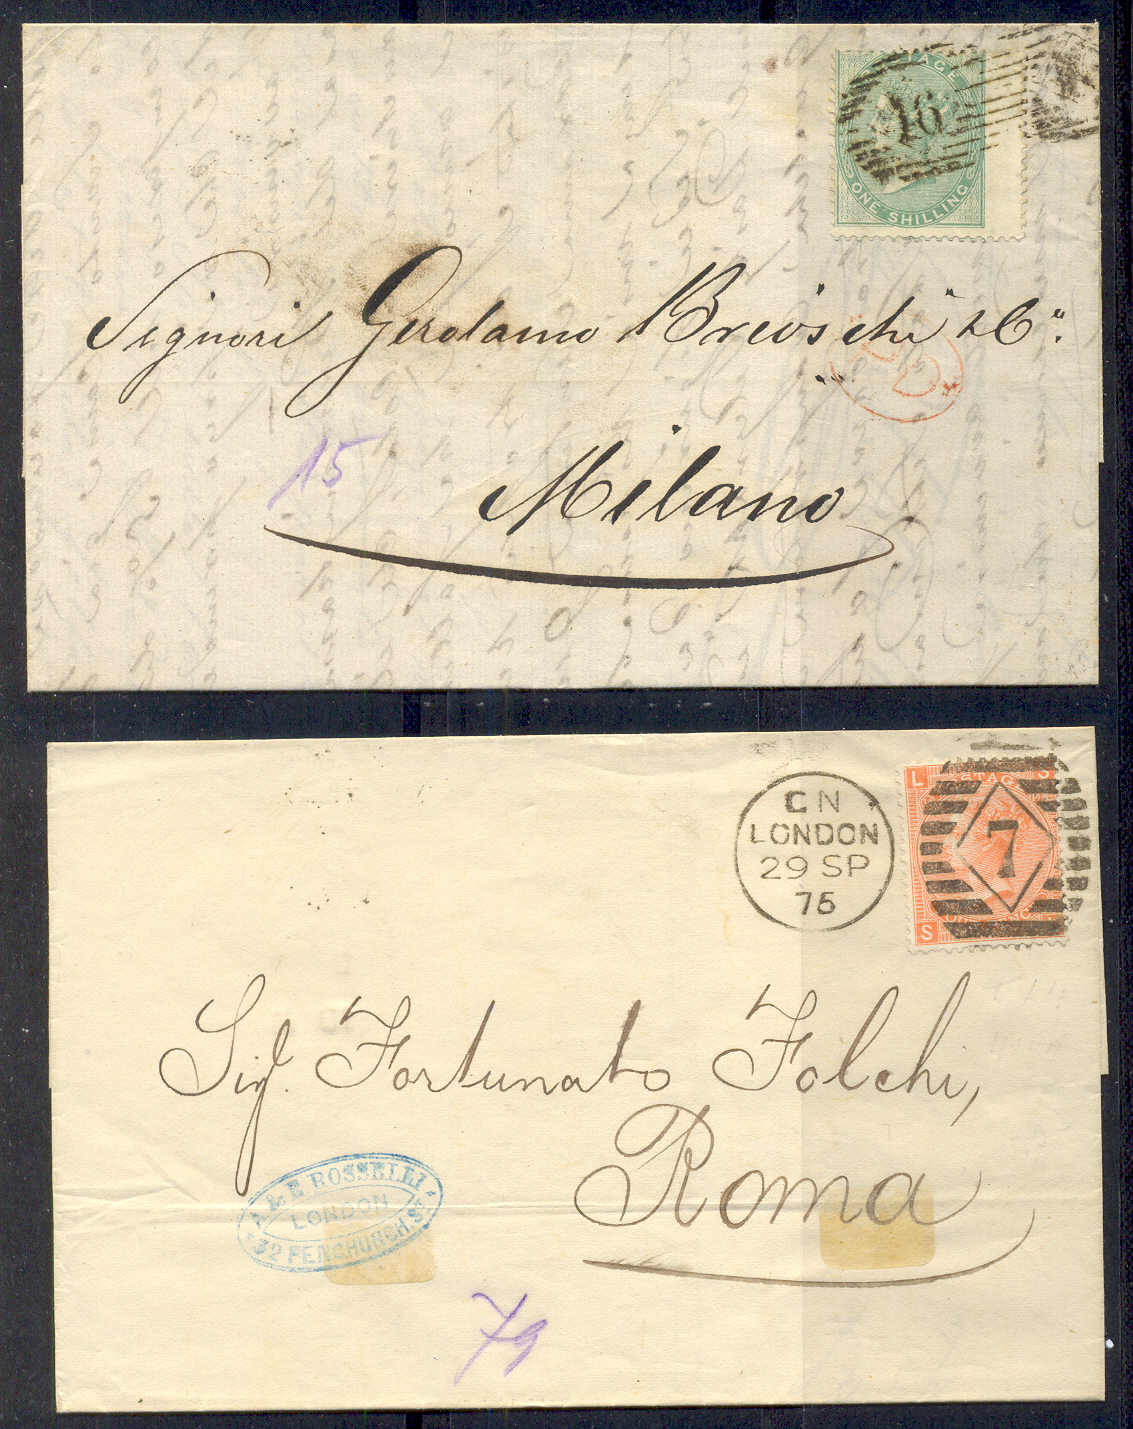 TAGE
46
ONE SHILLING
Signori Gerolamo Brioschi & Cº.
PD
15
Milano
CN
LONDON
29 SP
76
L S
STAGE
7
S
Sigr. Fortunato Folchi,
Roma
A & E ROSSELLI
LONDON
32 FENCHURCH ST
79